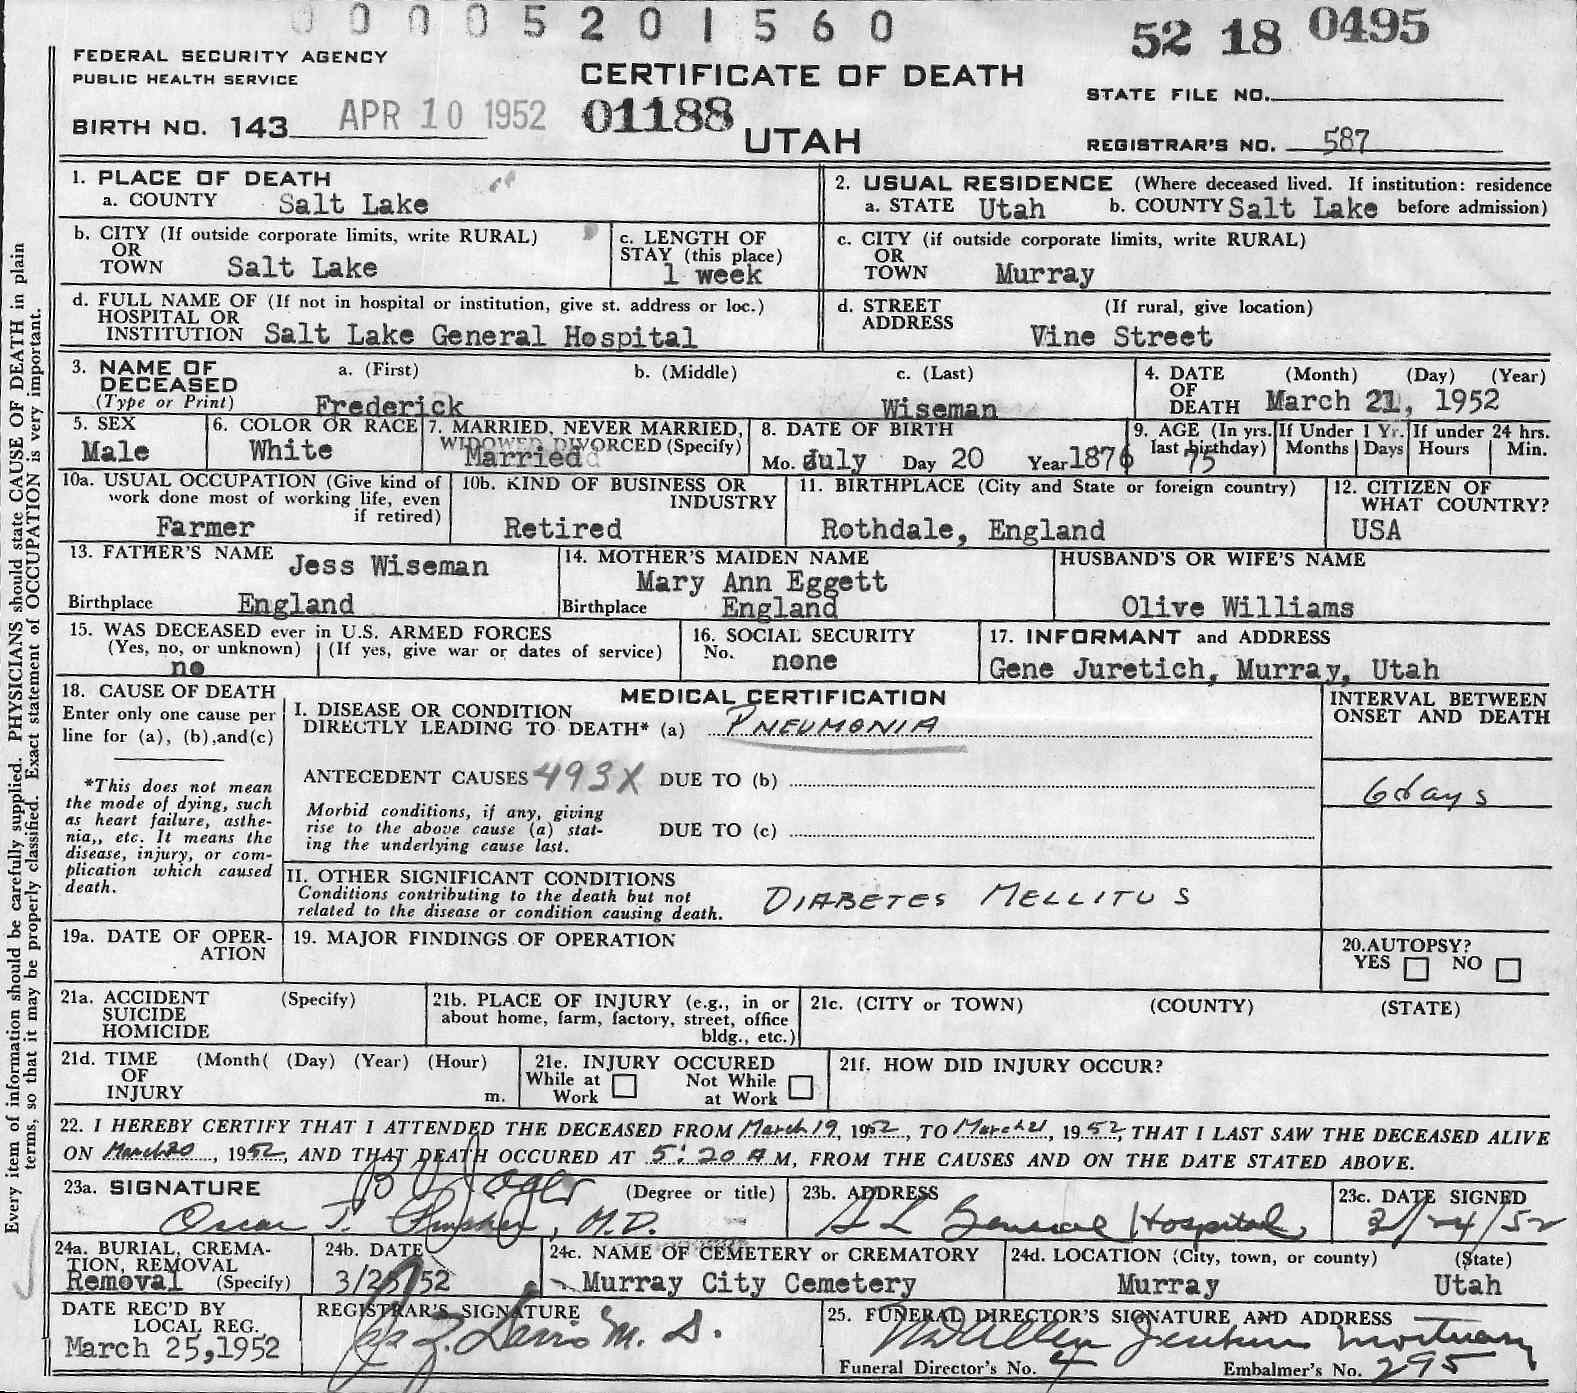 0 0 0 0 5 2 0 1 5 6 0
52 18 0495
FEDERAL SECURITY AGENCY
PUBLIC HEALTH SERVICE
CERTIFICATE OF DEATH
STATE FILE NO.
BIRTH NO. 143 APR 10 1952 01188
UTAH
REGISTRAR'S NO. 587
1. PLACE OF DEATH
a. COUNTY Salt Lake
2. USUAL RESIDENCE (Where deceased lived. If institution: residence
a. STATE Utah b. COUNTY Salt Lake before admission)
b. CITY (If outside corporate limits, write RURAL)
OR
TOWN Salt Lake
c. LENGTH OF
STAY (this place)
1 week
c. CITY (if outside corporate limits, write RURAL)
OR
TOWN Murray
d. FULL NAME OF (If not in hospital or institution, give st. address or loc.)
HOSPITAL OR
INSTITUTION Salt Lake General Hospital
d. STREET (If rural, give location)
ADDRESS
Vine Street
3. NAME OF a. (First) b. (Middle) c. (Last)
DECEASED
(Type or Print) Frederick Wiseman
4. DATE (Month) (Day) (Year)
OF
DEATH March 21, 1952
5. SEX
Male
6. COLOR OR RACE
White
7. MARRIED, NEVER MARRIED,
WIDOWED DIVORCED (Specify)
Married
8. DATE OF BIRTH
Mo. July Day 20 Year 1876
9. AGE (In yrs.
last birthday) 75
If Under 1 Yr.
Months Days
If under 24 hrs.
Hours Min.
10a. USUAL OCCUPATION (Give kind of
work done most of working life, even
if retired)
Farmer
10b. KIND OF BUSINESS OR
INDUSTRY
Retired
11. BIRTHPLACE (City and State or foreign country)
Rothdale, England
12. CITIZEN OF
WHAT COUNTRY?
USA
13. FATHER'S NAME Jess Wiseman
Birthplace England
14. MOTHER'S MAIDEN NAME
Mary Ann Eggett
Birthplace England
HUSBAND'S OR WIFE'S NAME
Olive Williams
15. WAS DECEASED ever in U.S. ARMED FORCES
(Yes, no, or unknown) (If yes, give war or dates of service)
no
16. SOCIAL SECURITY
No. none
17. INFORMANT and ADDRESS
Gene Juretich, Murray, Utah
18. CAUSE OF DEATH
Enter only one cause per
line for (a), (b),and(c)
*This does not mean
the mode of dying, such
as heart failure, asthe-
nia,, etc. It means the
disease, injury, or com-
plication which caused
death.
MEDICAL CERTIFICATION
I. DISEASE OR CONDITION
DIRECTLY LEADING TO DEATH* (a) PNEUMONIA
ANTECEDENT CAUSES 493X DUE TO (b)
Morbid conditions, if any, giving
rise to the above cause (a) stat-
ing the underlying cause last.
DUE TO (c)
INTERVAL BETWEEN
ONSET AND DEATH
6 days
II. OTHER SIGNIFICANT CONDITIONS
Conditions contributing to the death but not
related to the disease or condition causing death.
DIABETES MELLITUS
19a. DATE OF OPER-
ATION
19. MAJOR FINDINGS OF OPERATION
20. AUTOPSY?
YES NO
21a. ACCIDENT (Specify)
SUICIDE
HOMICIDE
21b. PLACE OF INJURY (e.g., in or
about home, farm, factory, street, office
bldg., etc.)
21c. (CITY or TOWN) (COUNTY) (STATE)
21d. TIME (Month( (Day) (Year) (Hour)
OF
INJURY m.
21e. INJURY OCCURED
While at Not While
Work at Work
21f. HOW DID INJURY OCCUR?
22. I HEREBY CERTIFY THAT I ATTENDED THE DECEASED FROM March 19, 1952, TO March 21, 1952, THAT I LAST SAW THE DECEASED ALIVE
ON March 20, 1952, AND THAT DEATH OCCURED AT 5:20 A M, FROM THE CAUSES AND ON THE DATE STATED ABOVE.
23a. SIGNATURE (Degree or title)
Oscar T. M.D.
23b. ADDRESS
S L General Hospital
23c. DATE SIGNED
3/24/52
24a. BURIAL, CREMA-
TION, REMOVAL
Removal (Specify)
24b. DATE
3/25/52
24c. NAME OF CEMETERY or CREMATORY
Murray City Cemetery
24d. LOCATION (City, town, or county) (State)
Murray Utah
DATE REC'D BY
LOCAL REG.
March 25,1952
REGISTRAR'S SIGNATURE
M. D.
25. FUNERAL DIRECTOR'S SIGNATURE AND ADDRESS
Jenkins Mortuary
Funeral Director's No. 4 Embalmer's No. 295
Every item of information should be carefully supplied. PHYSICIANS should state CAUSE OF DEATH in plain
terms, so that it may be properly classified. Exact statement of OCCUPATION is very important.